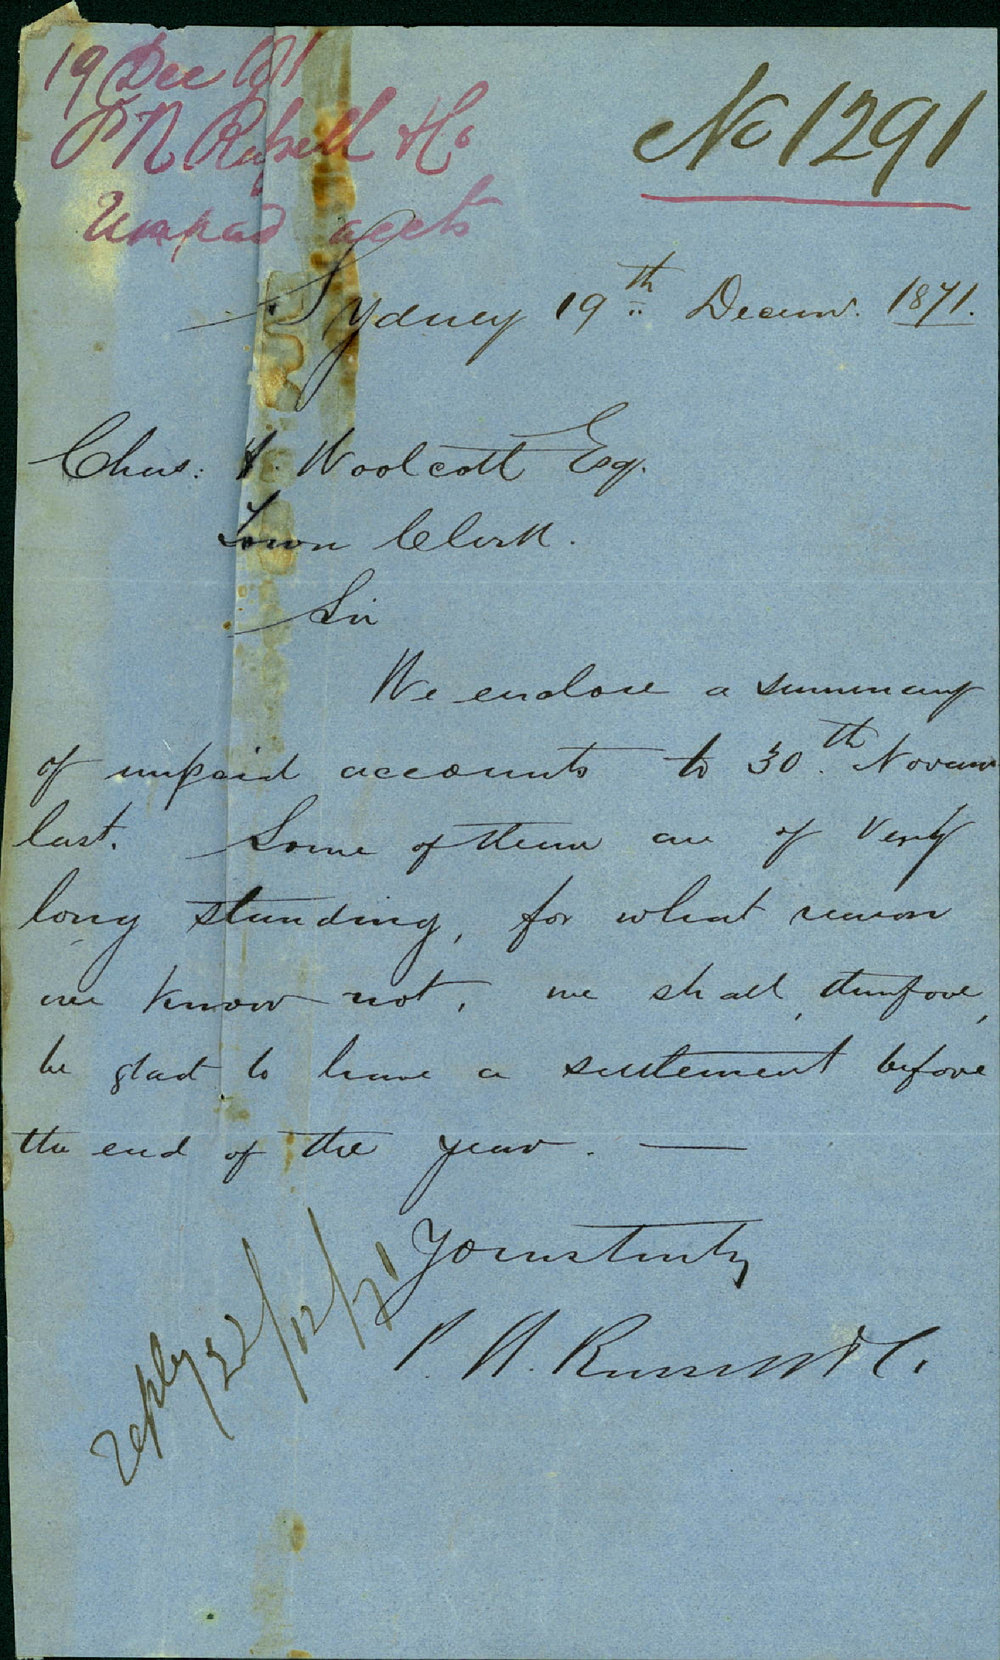 19 Dec 71
P N Russell & Co
Unpaid accts
No 1291
Sydney 19th Decemr. 1871.
Chas: H. Woolcott Esq.
Town Clerk.
Sir
We enclose a summary
of unpaid accounts to 30th Novem
last. Some of them are of very
long standing, for what reason
we know not, we shall, therefore,
be glad to have a settlement before
the end of the year. —
Yours truly
P. N. Russell & Co.
reply 22/12/71